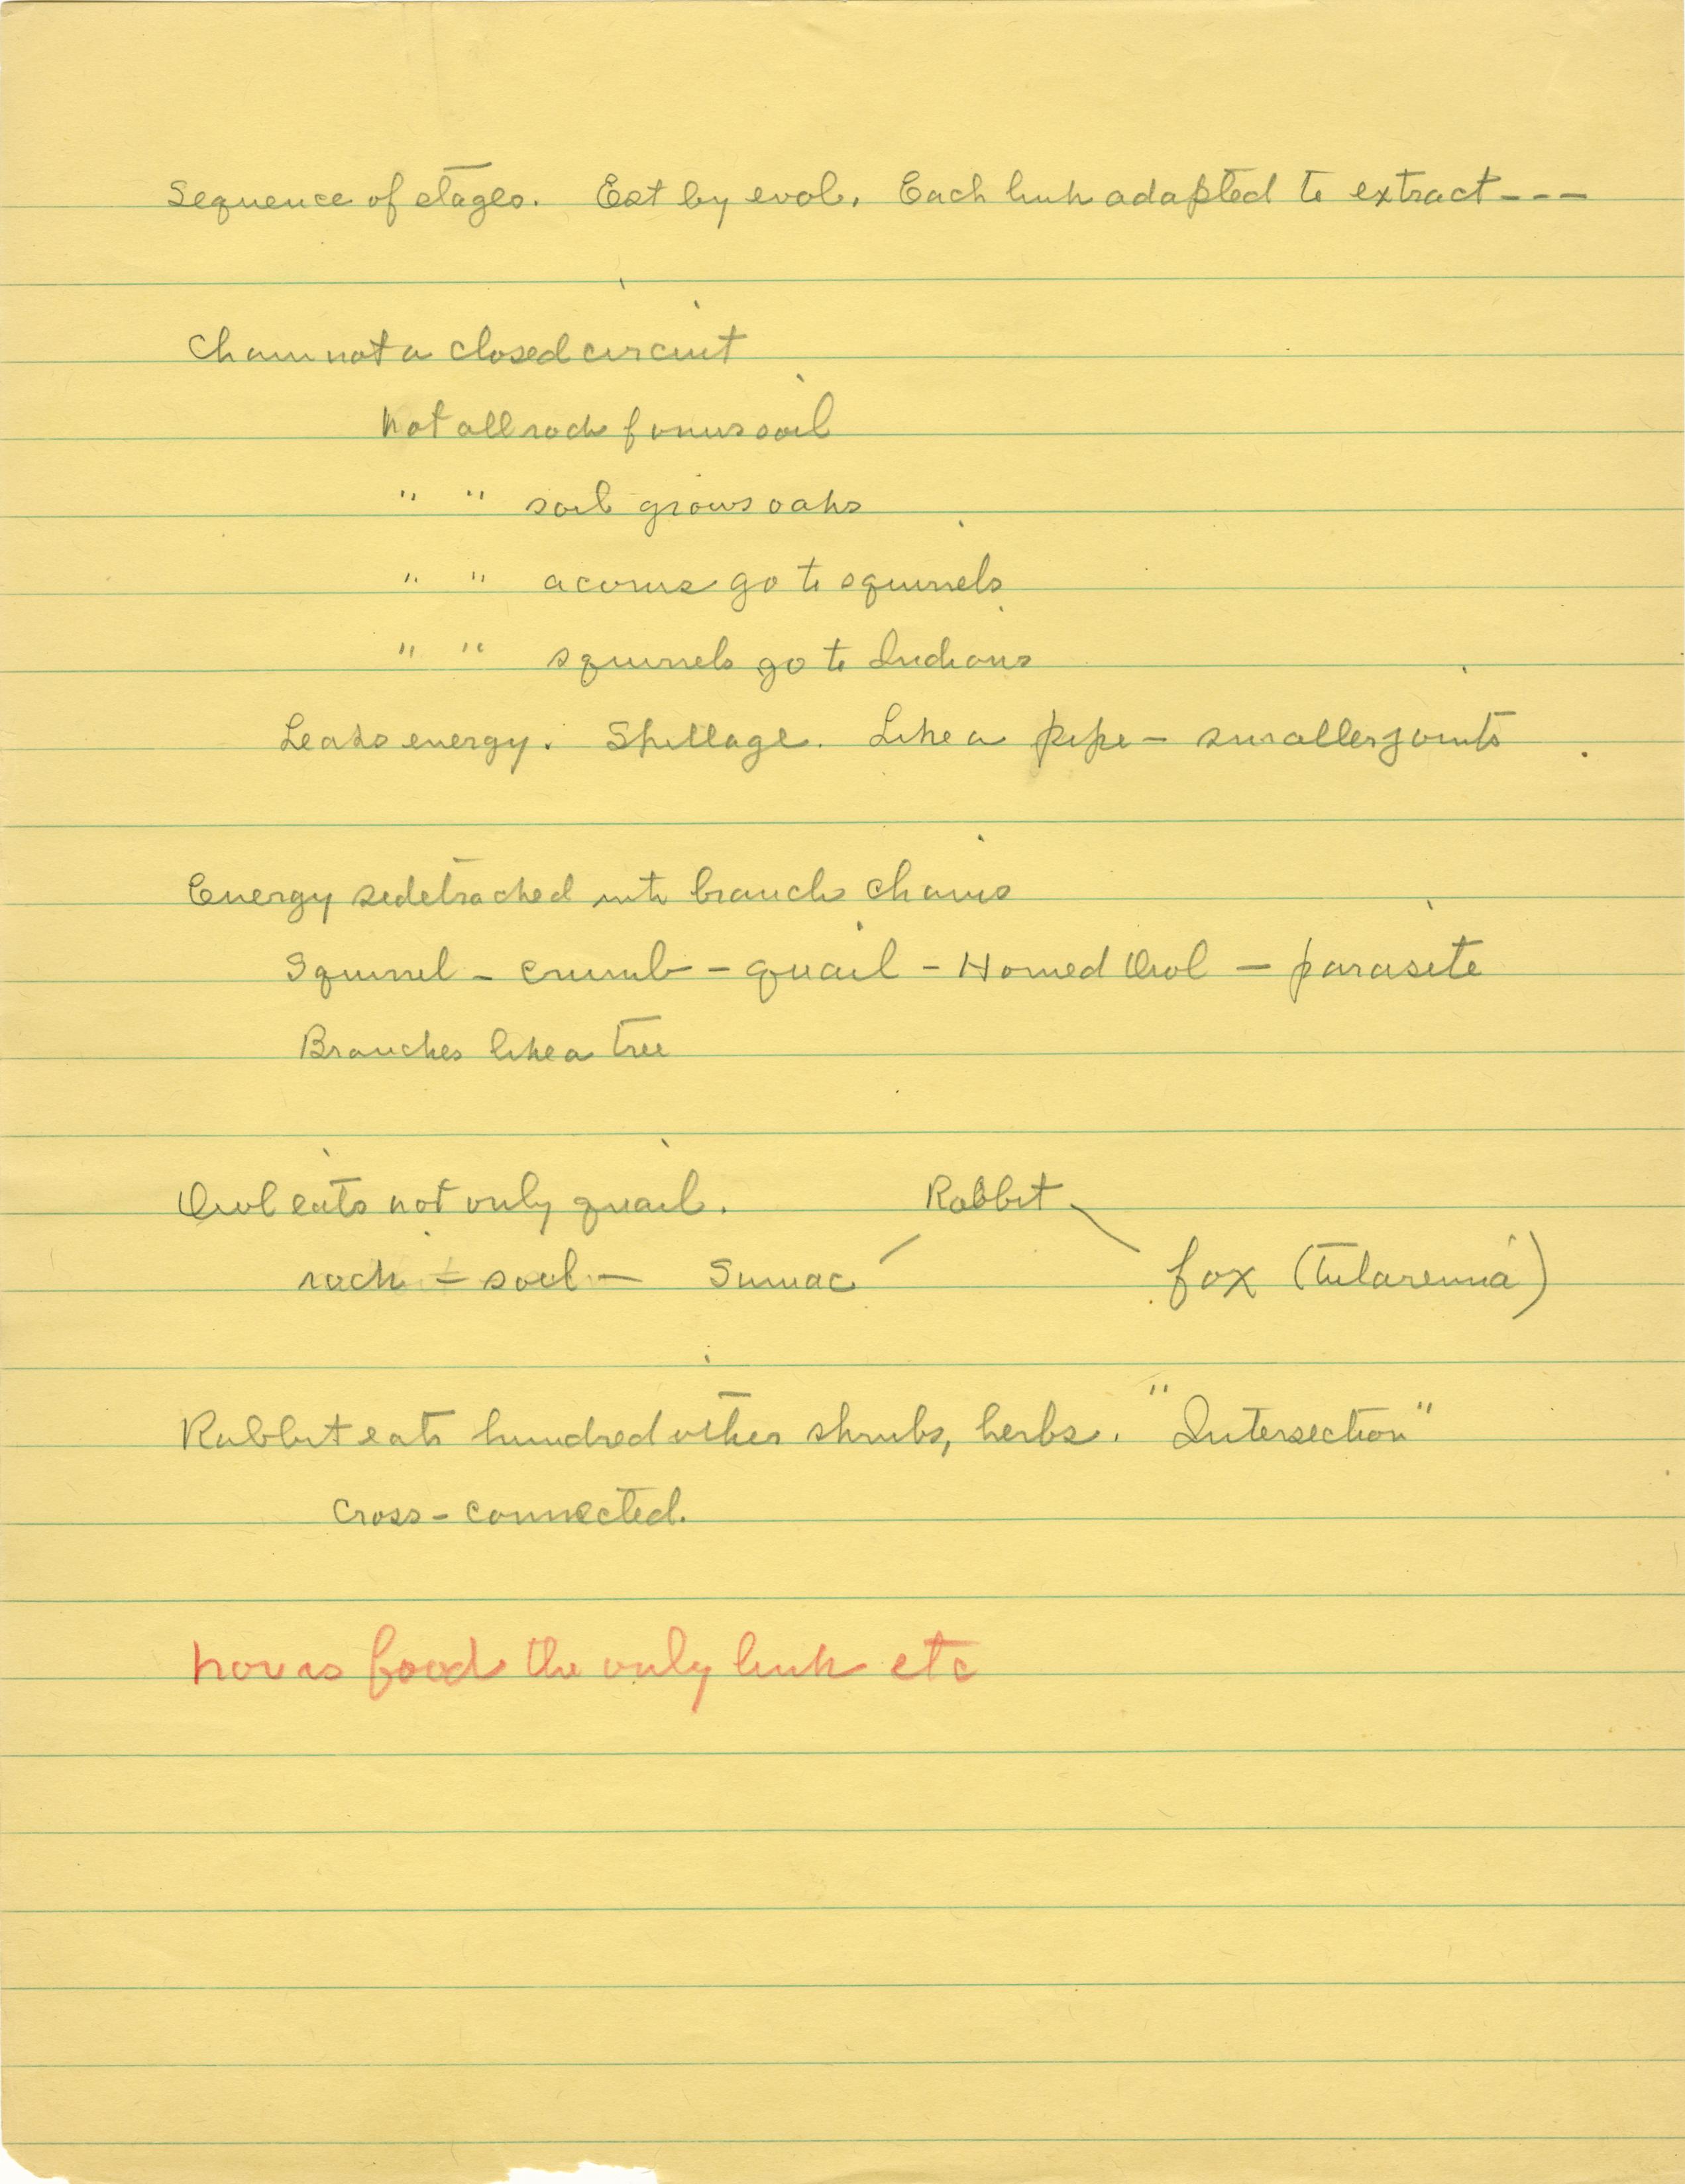 Sequence of stages. Est by evol. Each link adapted to extract ---
Chain not a closed circuit
Not all rock forms soil
" " soil grows oaks
" " acorns go to squirrels
" " squirrels go to Indians
Leaks energy. Spillage. Like a pipe - smaller joints
Energy sidetracked into branch chains
Squirrel - crumb - quail - Horned Owl - parasite
Branches like a tree
Owl eats not only quail. Rabbit
rock - soil - Sumac fox (tularemia)
Rabbit eats hundred other shrubs, herbs. "Intersection"
Cross-connected.
Nor is food the only link etc